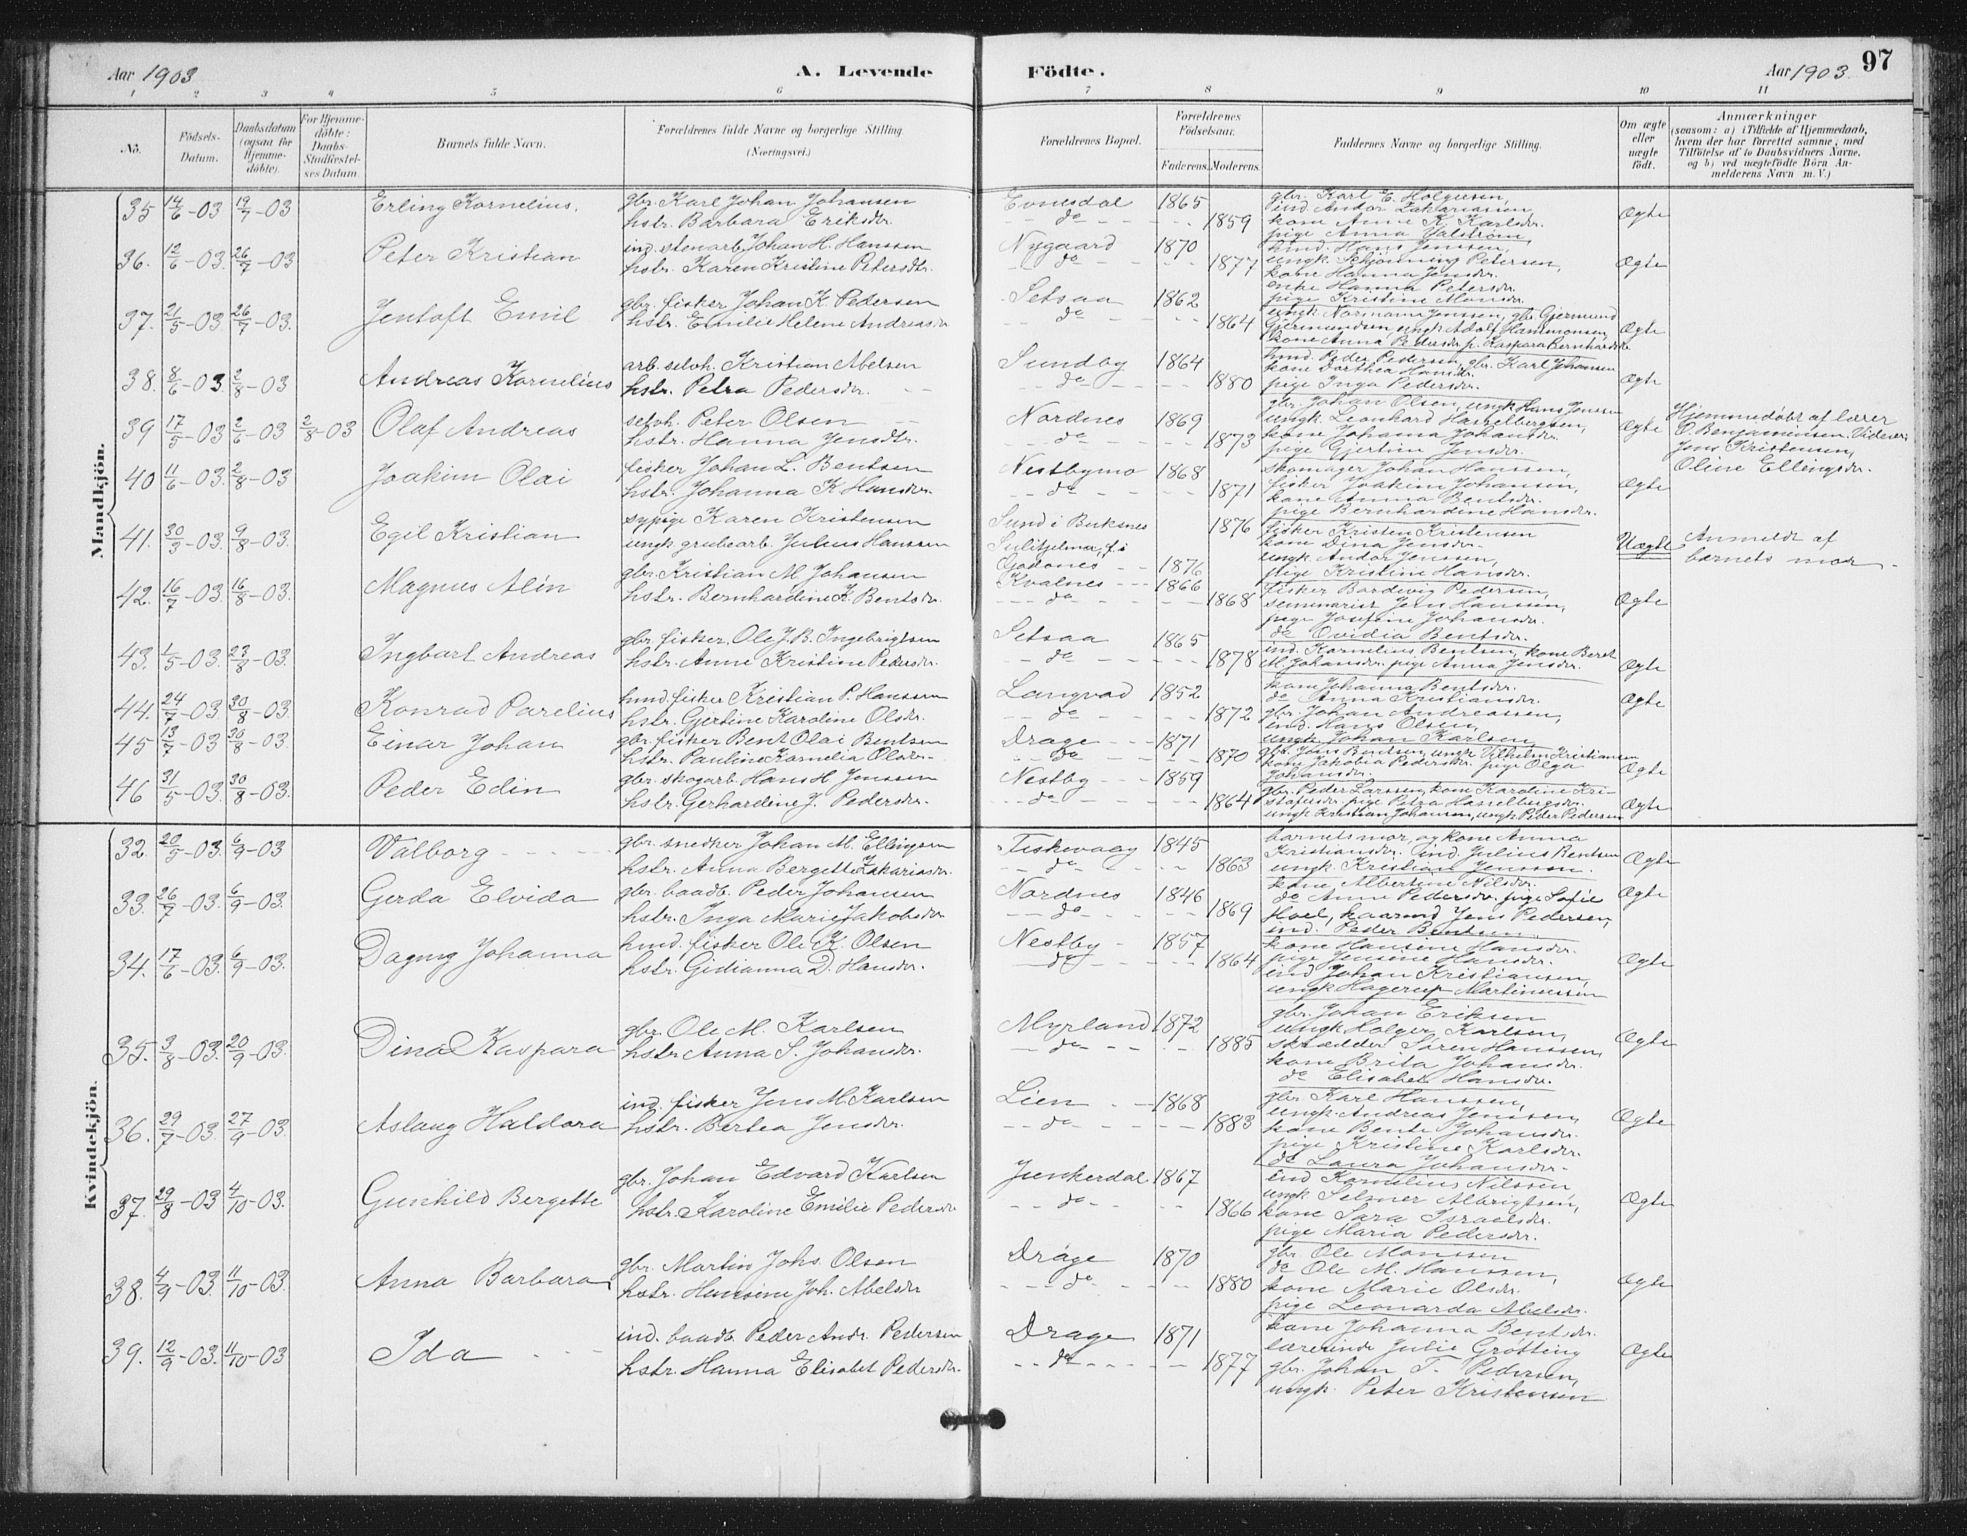 Aar 1903
A. Levende Födte.
Aar 1903.
97
1 2 3 4 5 6 7 8 9 10 11
No. Födsels-Datum. Daabsdatum (ogsaa for Hjemmedöbte). For Hjemmedöbte: Daabs-Stadfæstelses Datum. Barnets fulde Navn. Forældrenes fulde Navne og borgerlige Stilling. (Næringsvei.) Forældrenes Bopæl. Forældrenes Födselsaar. Faderens. Moderens. Faddernes Navne og borgerlige Stilling. Om ægte eller uægte födt. Anmærkninger (saasom: a) i Tilfælde af Hjemmedaab, hvem der har forrettet samme, med Tilföielse af to Daabsvidners Navne, og b) ved uægtefödte Börn Anmelderens Navn m. V.)
Mandkjön.
35 14/6-03 19/7-03 Erling Kornelius. gbr. Karl Johan Johansen Evnesdal 1865 gbr. Karl E. Holgersen,
hstr. Barbara Eriksdr. do 1859 ind. Andor Zakariassen kone Anne K. Karlsdr. Ægte
pige Anna Valstrøm
36. 12/6-03. 26/7-03 Peter Kristian ind. stenarb. Johan H. Hanssen Nygaard 1870 hmd. Hans Jenssen,
hstr. Karen Kristine Petersdtr. do 1877 ungk. Schjønning Petersen, kone Hanna Jensdr. Ægte
enke Hanna Petersdr. pige Kristine Monsdr.
37. 21/5-03 26/7-03. Jentoft Emil gbr. fisker Johan K. Pedersen Setsaa 1862 ungk. Normann Jenssen, gbr. Gjermund
hstr. Emilie Helene Andreasdr. do 1864 Gjermundsen ungk. Adolf Hammonsen, Ægte
kone Anna Pedersdr. p. Kaspara Bernhardsdr.
38. 8/6-03 2/8-03 Andreas Kornelius arb. selvh. Kristian Abelsen Sundby 1864 hmd. Peder Pedersen, gbr. Karl Johansen
hstr. Petra Pedersdr. do 1880 kone Dorthea Hansdr. pige Inga Pedersdr. Ægte
39 17/5-03 2/6-03 2/8-03 Olaf Andreas selvh. Peter Olsen Nordnes 1869 gbr. Johan Olsen, ungk. Hans Jenssen Hjemmedøbt af lærer
hstr. Hanna Jensdtr. do 1873 ungk. Leonhard Hasselbergsen, kone Johanna Johansdr. Ægte O. Benjaminsen. Vidner:
pige Gjertine Jensdr. Jens Kristensen,
Oline Ellingsdr.
40 11/6-03. 2/8-03 Joakim Olai fisker Johan L. Bentsen Nestbymo 1868 skomager Johan Hanssen,
hstr. Johanna K. Hansdr. do 1871 fisker Joakim Johansen, kone Anna Bentsdr. Ægte
pige Bernhardine Hansdr.
41. 30/3-03. 9/8-03. Egil Kristian sypige Karen Kristensen Sund i Buksnes 1876 fisker Kristen Kristensen
ungk. grubearb. Julius Hanssen Sulitjelma, f. i Godønes 1876 kone Dina Jensdr. ungk. Andor Jenssen, Uægte Anmeldt af
pige Kristine Hansdr. barnets mor
42. 16/7-03 16/8-03. Magnus Alin gbr. Kristian M. Johansen Kvalnes 1866 fisker Bardevig Pedersen,
hstr. Bernhardine K. Bentsdr. do 1868 seminarist Jens Hanssen, pige Josefine Johansdr. Ægte
do Ovidia Bentsdr.
43. 1/5-03. 23/8-03. Ingbart Andreas gbr. fisker, Ole J. B. Ingebrigtsen Setsaa 1865 ind. Kornelius Bentsen, kone Beret
hstr. Anne Kristine Pedersdr. do 1878 M. Johansdr. pige Anna Jensdr. Ægte
44. 24/7-03 30/8-03. Konrad Parelius hmd. fisker Kristian P. Hanssen Langvad 1852 kone Johanna Bentsdr. do Anna Kristiansdr.
hstr. Gjertine Karoline Olsdr. do 1872 gbr. Johan Andreassen, ind. Hans Olsen, Ægte
ungk. Johan Karlsen
45 13/7-03 30/8-03. Einar Johan gbr. fisker Bent Olai Bentsen Drage 1871 gbr. Jens Bentsen, ungk. Vilhelm Kristiansen
hstr. Pauline Kornelia Olsdr. do 1870 kone Jakobia Pedersdr. pige Olga Johansdr. Ægte
46 31/5-03. 30/8-03. Peder Edin gbr. skogarb. Hans H. Jenssen Nestby 1859 gbr. Peder Larssen, kone Karoline Kri-
hstr. Gerhardine J. Pedersdr. do 1864 stofersdr. pige Petra Hasselbergsdr. Ægte
ungk. Kristian Johansen, ungk. Peder Pedersen
Kvindekjön.
32. 20/5-03 6/9-03 Valborg gbr. snedker Johan M. Ellingsen Fiskvaag 1845 barnets mor, og kone Anna
hstr. Anna Bergette Zakariasdr. do 1863 Kristiansdr. ind. Julius Bentsen ungk. Kristian Jenssen. Ægte
33. 26/7-03. 6/9-03. Gerda Elvida gbr. baadb. Peder Johansen Nordnes 1846 kone Albertine Nilsdr. do Anne Pedersdr. pige Sofie
hstr. Inga Marie Jakobsdr. do 1869 Hoel, kaarmd Jens Pedersen, Ægte
ind. Peder Bentsen.
34. 17/6-03. 6/9-03. Dagny Johanna hmd. fisker Ole K. Olsen Nestby 1857 kone Hansine Hansdr.
hstr. Gidianna D. Hansdr. do 1864 pige Jensine Hansdr. ind Johan Kristiansen, Ægte
ungk Hagerup Martinussen
35. 3/8-03. 20/9-03. Dina Kaspara gbr. Ole M. Karlsen Myrland 1872 gbr. Johan Eriksen ungk Holger Karlsen,
hstr Anna S. Johansdr. do 1885 skrædder Søren Hanssen, Ægte
kone Brita Johansdr. do Elisabet Hansdr.
36. 29/7-03. 27/9-03. Aslaug Haldora ind. fisker Jens M. Karlsen Lien 1868 gbr. Karl Hanssen, ungk. Andreas Jenssen,
hstr. Bertea Jensdr. do 1883 kone Bente Johansdr. pige Kristine Karlsdr. Ægte
do Laura Johansdr.
37. 29/8-03 4/10-03. Gunhild Bergette gbr. Johan Edvard Karlsen Junkerdal 1867 ind Kornelius Nilssen
hstr. Karoline Emilie Pedersdr do 1866 ungk. Selmer Albrigtsen, kone Sara Israelsdr. Ægte
pige Maria Pedersdr.
38. 4/9-03. 11/10-03. Anna Barbara gbr. Martin Johs. Olsen Drage 1870 gbr. Ole Monssen do Ole M. Hanssen,
hstr. Hansine Joh. Abelsdr do 1880 kone Marie Olsdr. Ægte
pige Leonarda Abelsdr.
39. 12/9-03. 11/10-03 Ida ind. baadb. Peder Andr. Pedersen Drage 1871 kone Johanna Bentsdr. lærerinde Julie Grøtting
hstr. Hanna Elisabet Pedersdr. do 1877 gbr. Johan T. Pedersen, Ægte
ungk. Peter Kristensen